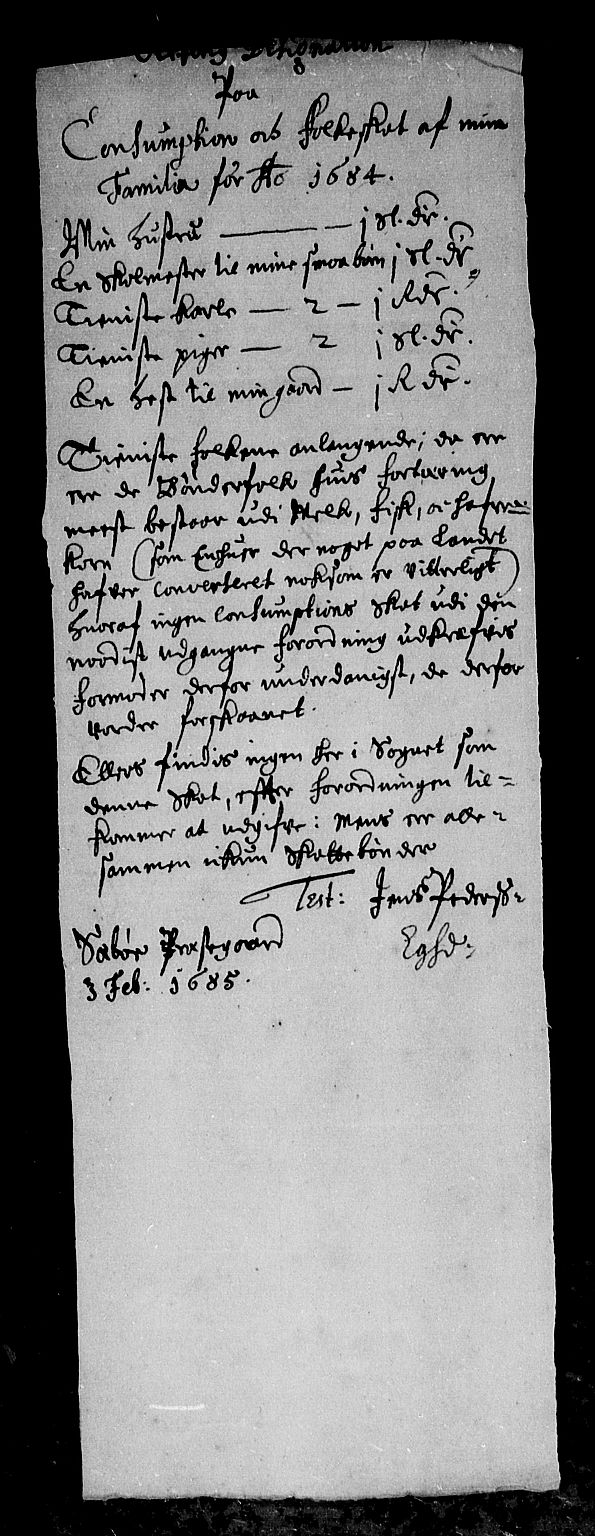 Designation
Paa
Consumption och Folkeskat af mine
Familia for Ao 1684.
Min hustru — j Sl. dr.
En Skolmester til mine smaa børn j Sl. dr
Tieniste karle — 2 — j R dr.
Tieniste piger — 2 j Sl. dr.
En hest til min gaard — j R dr.
Tieniste folkene anlangende, da ere
ere de Bønderfolk huis fortæring
meest bestaar udi Melk, fisk, oc hafre
korn (som Enhuer der noget paa Landet
hafver converteret noksom er vitterligt)
huoraf ingen Consumptions Skat udi den
naadigst udgangne forordning udkræfvis
formoder derfor underdanigst, de derfor
vorder forskaanet.
Ellers findis ingen her i Sognet som
denne Skat, efter forordningen til-
kommer at udgifve: Mens ere alle-
sammen ikun Skattebønder
Test: Jens Pederss:
Sæbøe Præstegaard
3 Feb: 1685.